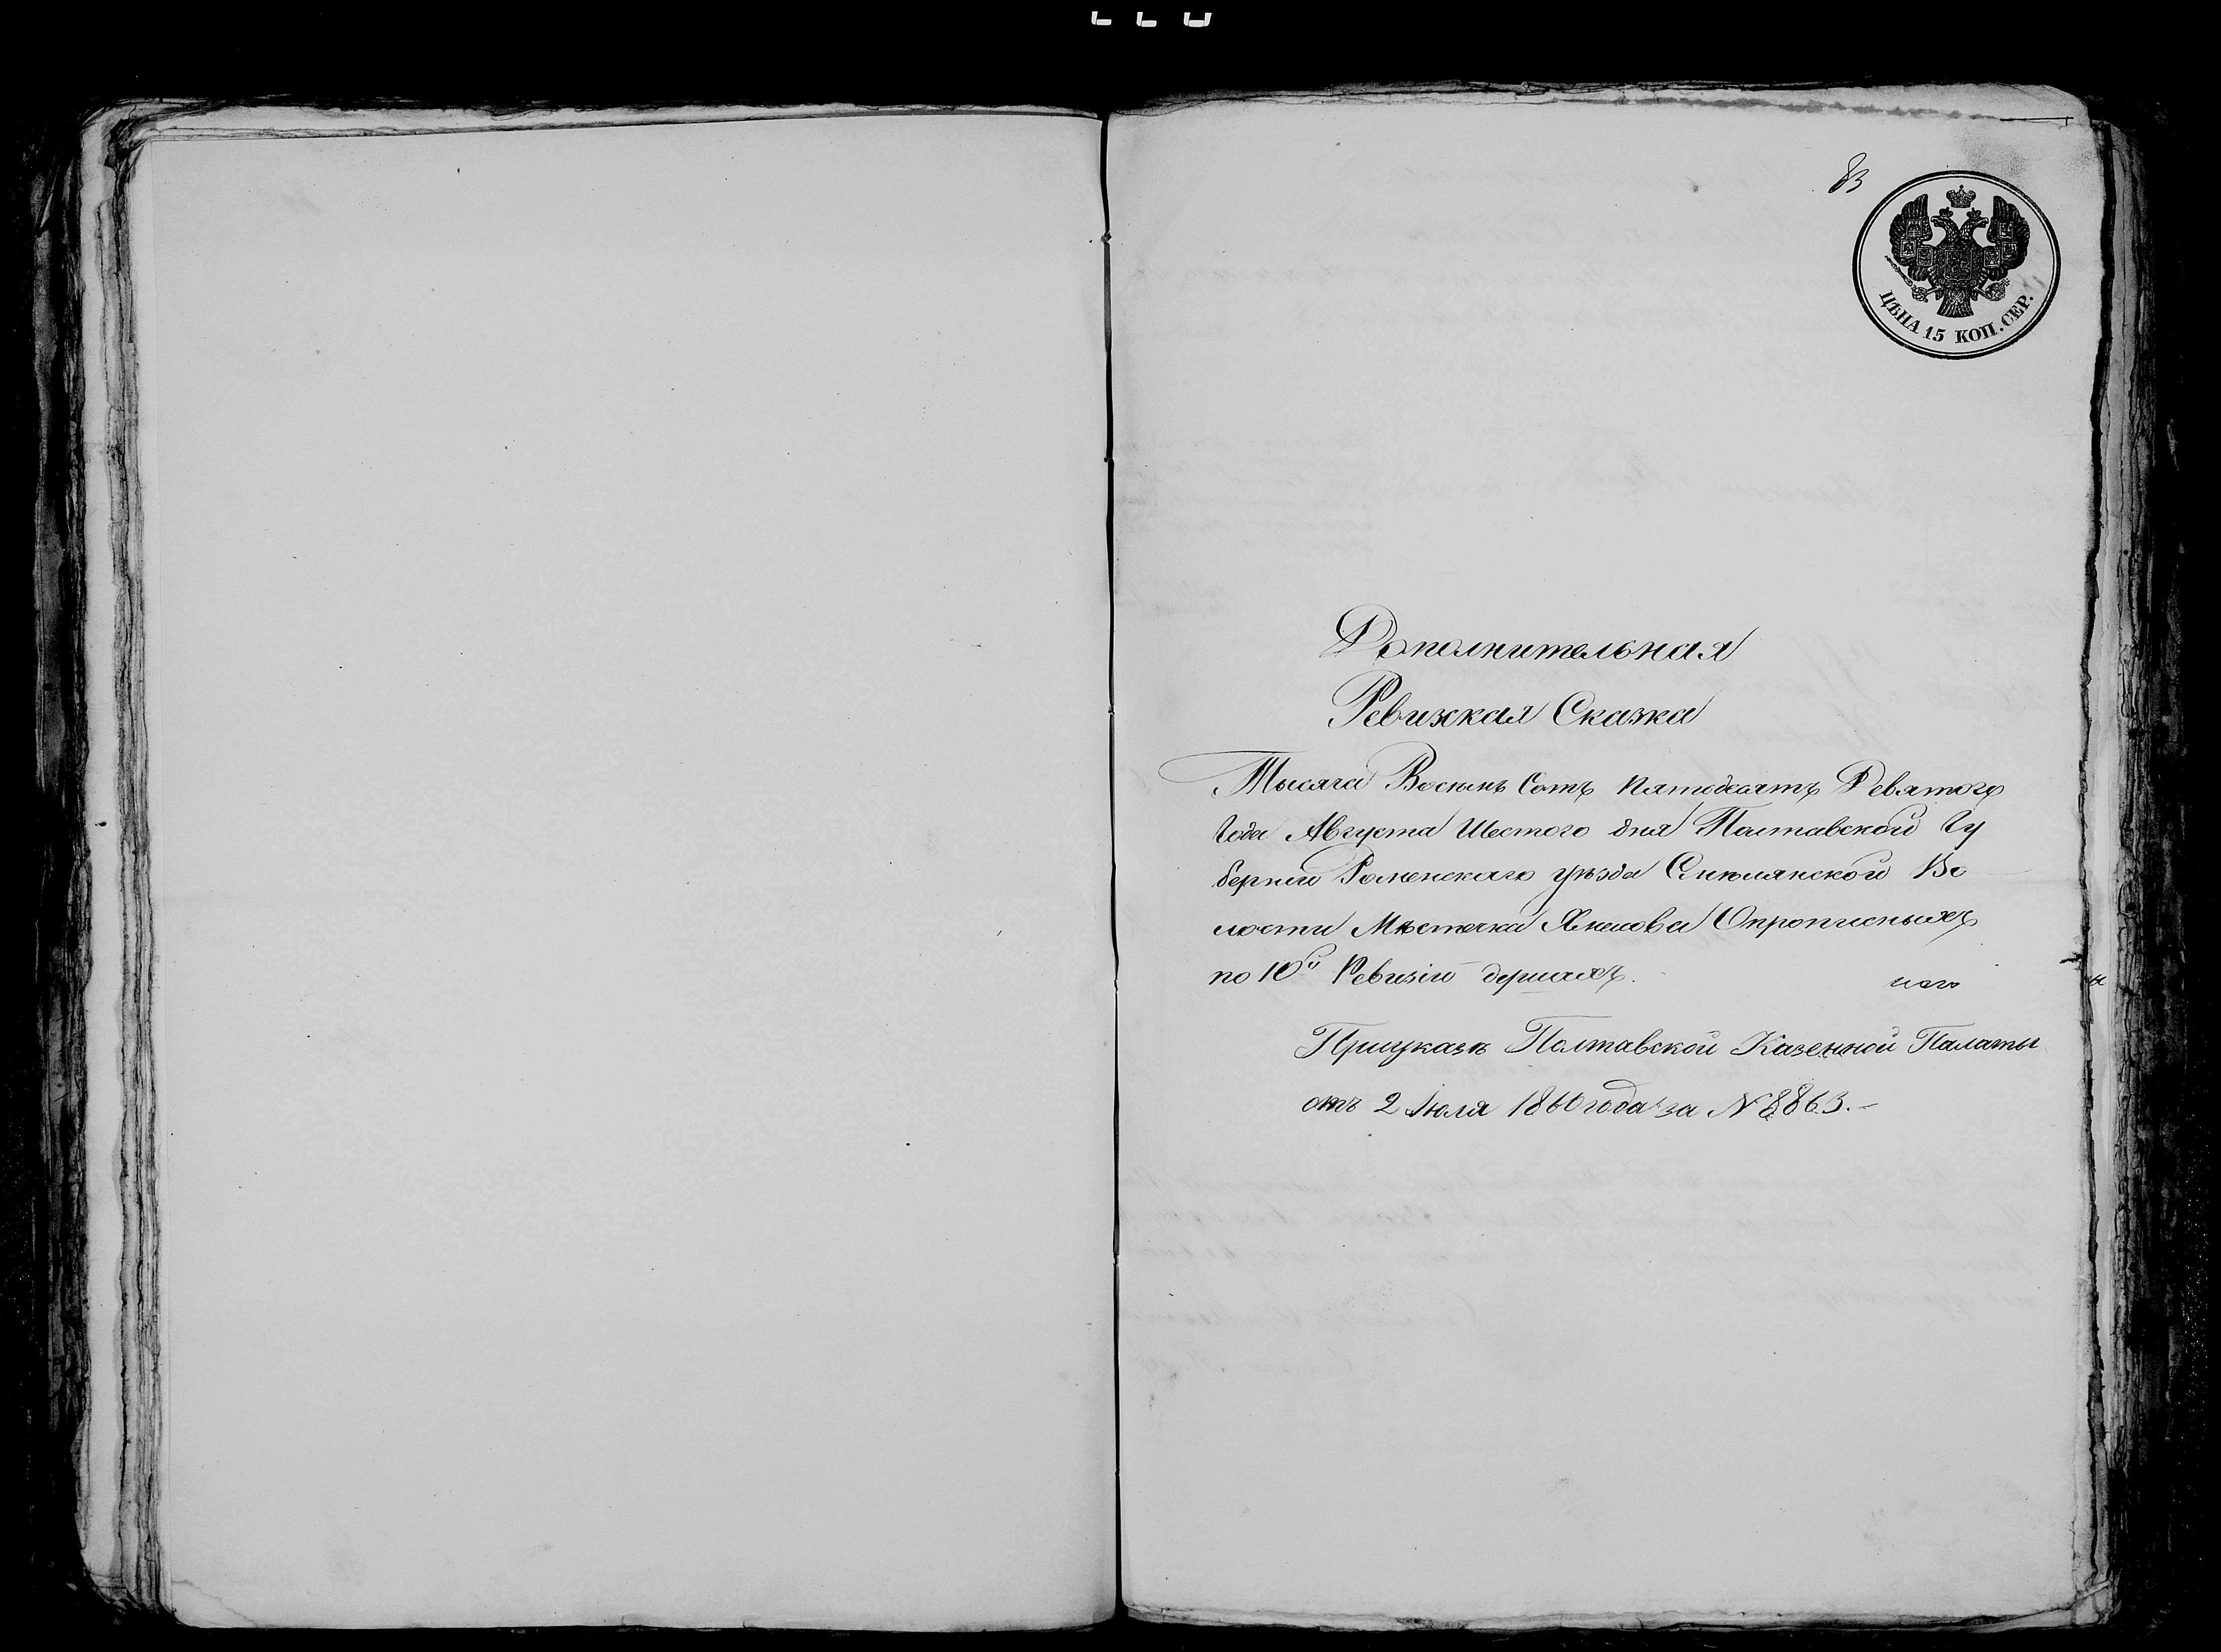 83
ЦѢНА 15 КОП. СЕР.
Дополнительная
Ревижкая Сказка
Тысяча Восемь Сотъ Пятьдесятъ Девятого
Года Августа Шестого дня Полтавской Гу
берніи Роменскаго уѣзда Смелянской Во
лости Мѣстечка Хмелова Опрописныхъ
по 10й Ревизіи душахъ.
Приуказѣ Полтавской Казенной Палаты
отъ 2 Іюля 1860 года за N 8863.-